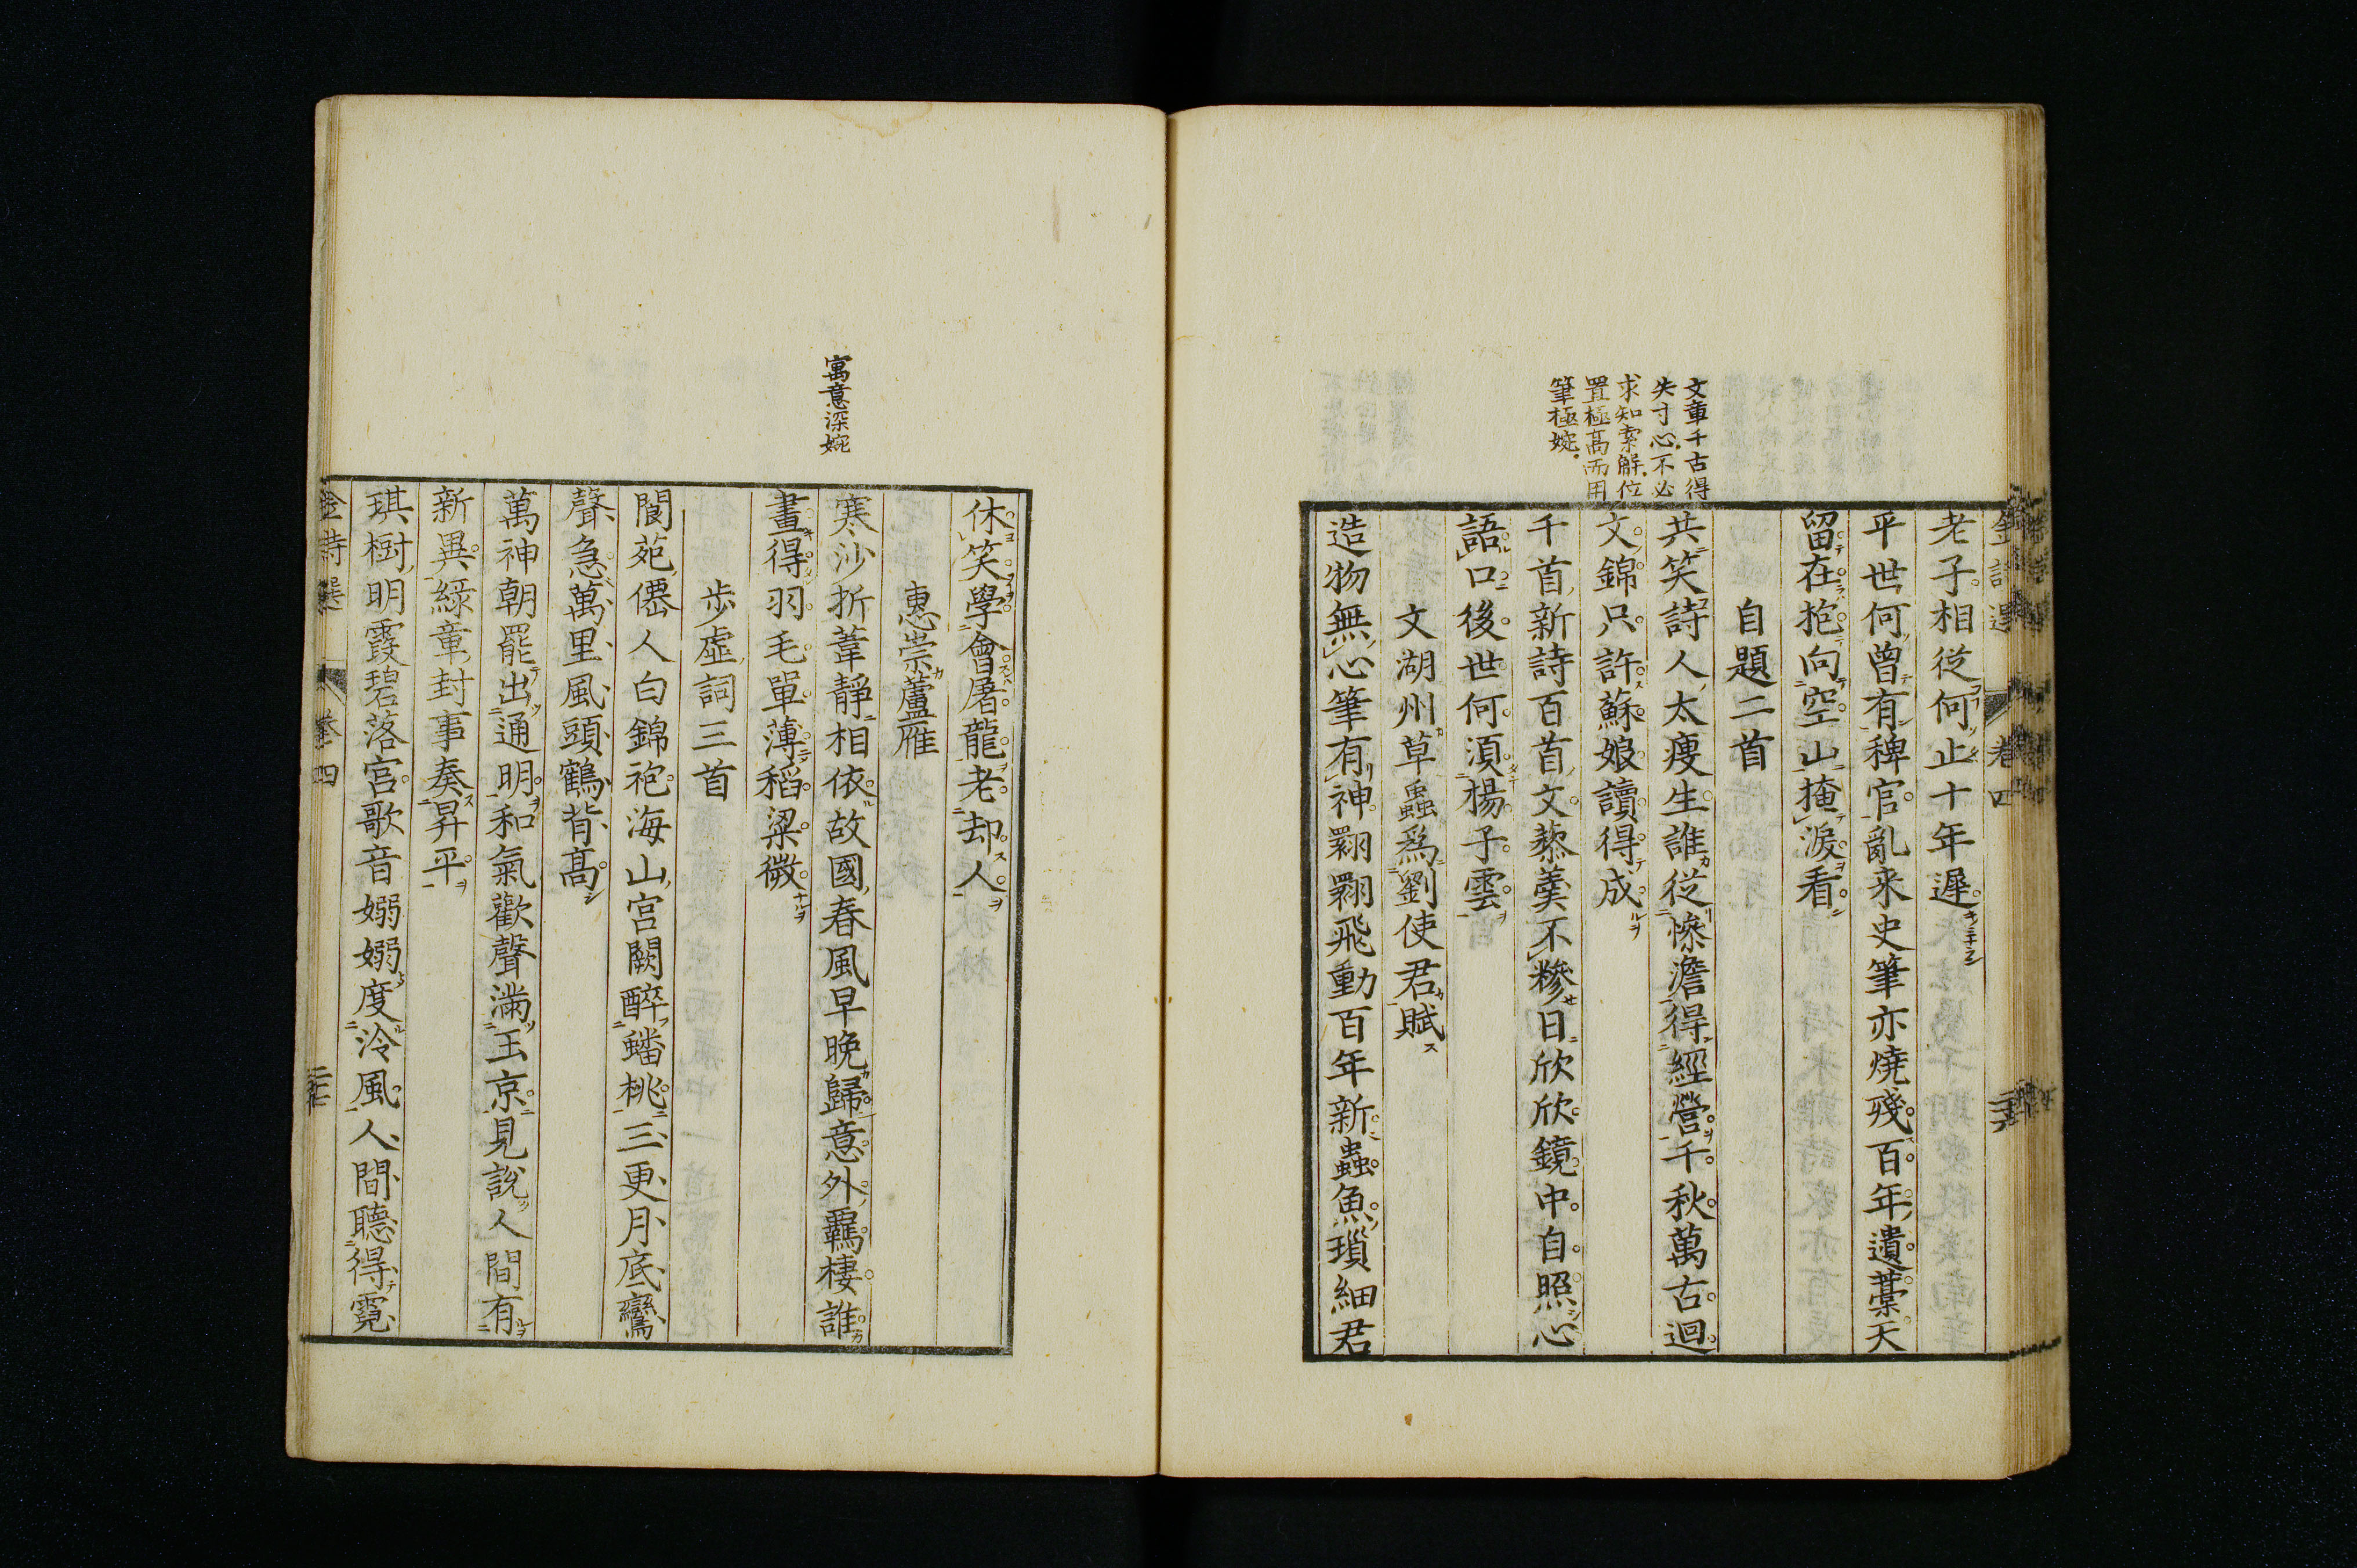 老子相從何止十年遲
平世何曾有稗官亂来史筆亦燒殘百年遺藁天
留在抱向空山掩淚看
自題二首
共笑詩人太瘦生誰從慘澹得經營千秋萬古迴
文錦只許蘇娘讀得成
千首新詩百首文藜羹不糝日欣欣鏡中自照心
語口後世何湏楊子雲
文湖州草蟲爲劉使君賦
造物無心筆有神翾翾飛動百年新蟲魚瑣細君
文章千古得
失寸心不必
求知索解位
置極高而用
筆極婉
休笑學會屠龍老却人
惠崇蘆雁
寒沙折葦靜相依故國春風早晚歸意外羈棲誰
畫得羽毛單薄稻粱微
歩虛詞三首
閬苑僊人白錦袍海山宮闕醉蟠桃三更月底鸞
聲急萬里風頭鶴背高
萬神朝罷出通明和氣歡聲滿玉京見說人間有
新異緑章封事奏昇平
琪樹明霞碧落宮歌音嫋嫋度泠風人間聽得霓
寓意深婉
金詩選 卷四